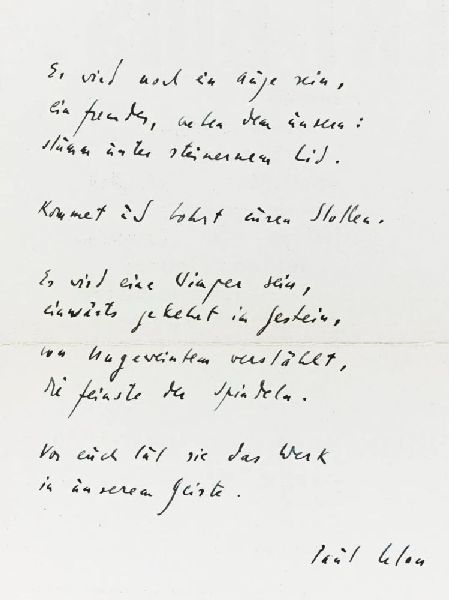 Es wird noch ein Auge sein,
ein fremdes, neben dem unsern:
stumm unter steinernem Lid.
Kommet und bohrt euren Stollen.
Es wird eine Wimper sein,
einwärts gekehrt im Gestein,
von Ungeweintem verstählt,
die feinste der Spindeln.
Vor euch tut sie das Werk
in unserem Geiste.
Paul Celan